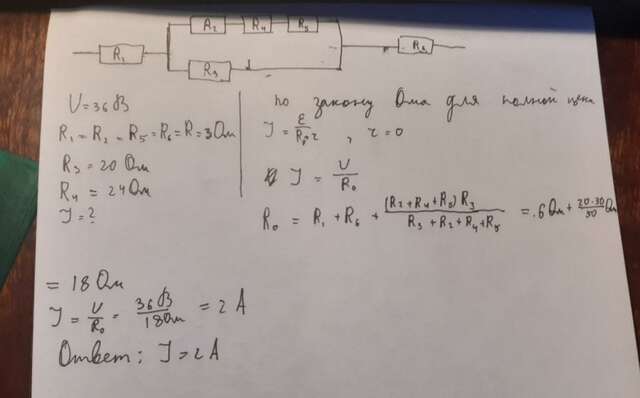 R₂ R₄ R₅
R₁ R₆
R₃
U = 36 В
R₁ = R₂ = R₅ = R₆ = R = 3 Ом
R₃ = 20 Ом
R₄ = 24 Ом
I = ?
по закону Ома для полной цепи
I = ε/(R₀+r), r = 0
I = U/R₀
R₀ = R₁ + R₆ + (R₂+R₄+R₅)R₃/(R₃+R₂+R₄+R₅) = 6 Ом + 20·30/50 Ом
= 18 Ом
I = U/R₀ = 36 В/18 Ом = 2 А
Ответ: I = 2 А